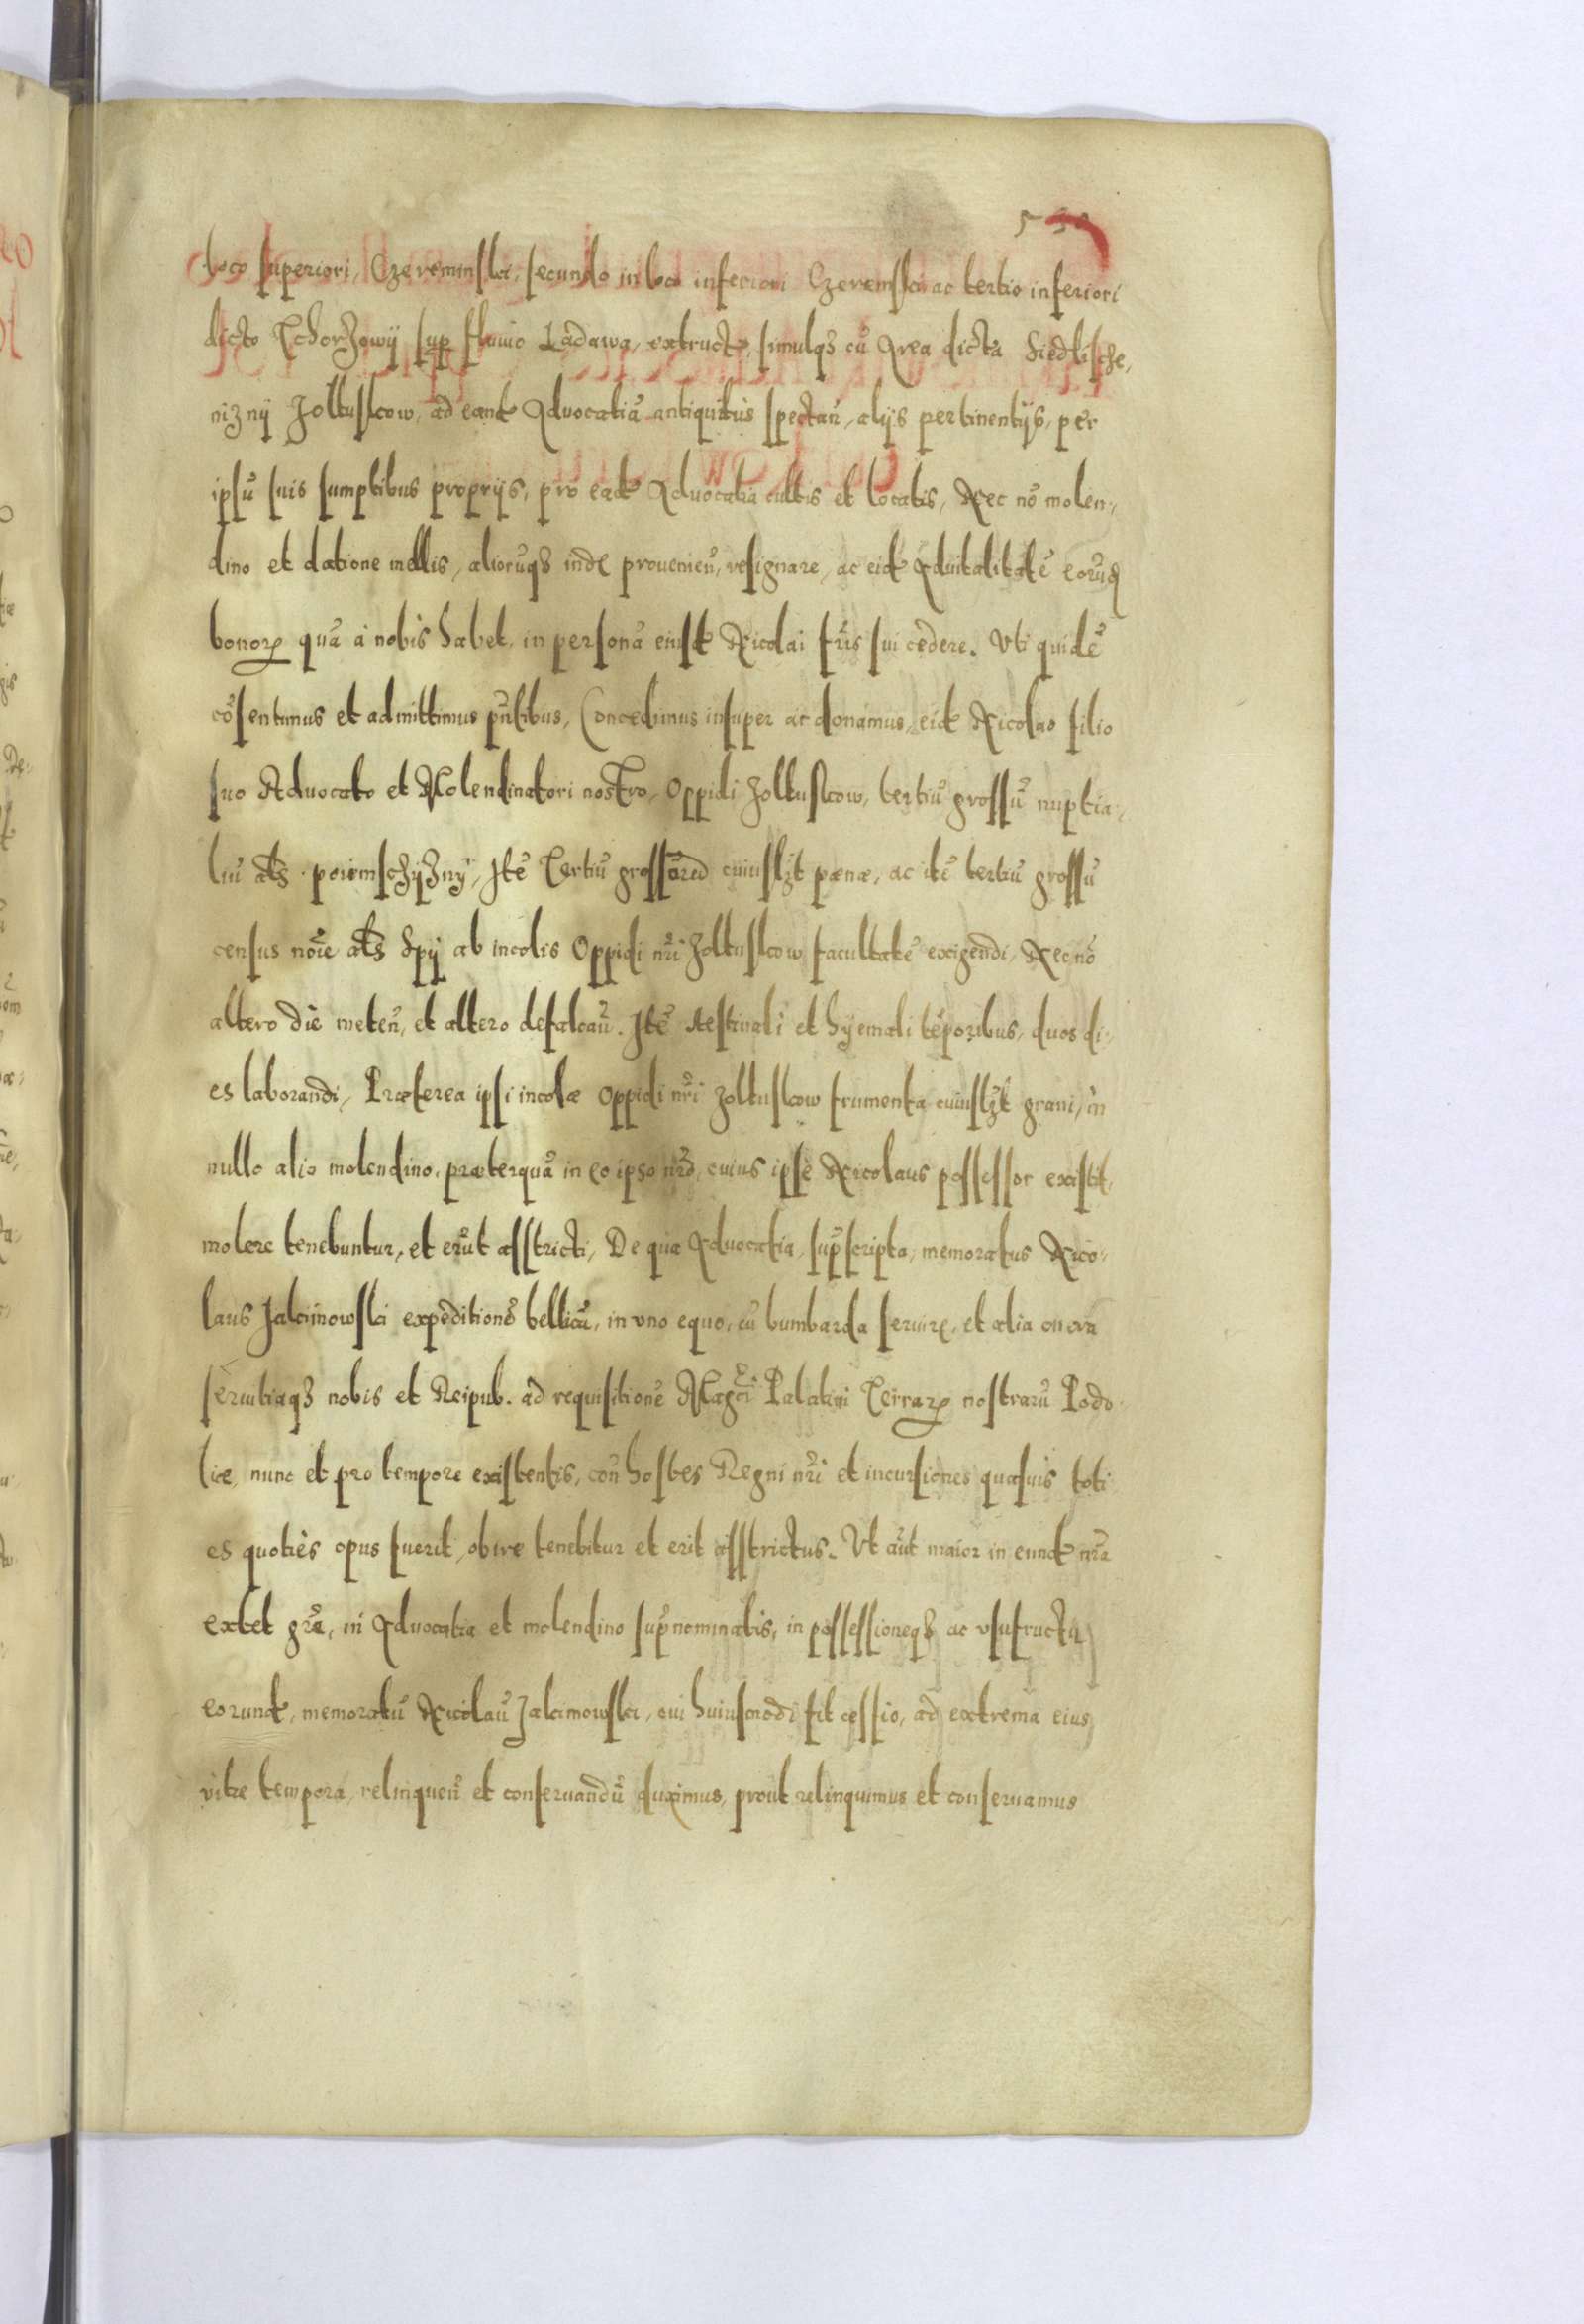 loco superiori, Czereminski, secundo in loco inferiori Czeremski ac tertio inferiori
dicto Tchorzowÿ sup fluuio Ladawa, extructo, simulqȝ cũ Area dicta Siedlische,
niznÿ Zoltuskow, ad eand Aduocatiã antiquitùs spectañ, alÿs pertinentÿs, per
ipsũ suis sumptibus proprÿs, pro ead Aduocatia cultis et locatis, Nec nõ molen,
dino et datione mellis, aliorũqȝ inde prouenieñ, resignare, ac eid Aduitalitatẽ eorũd
bonoꝝ quã à nobis habet, in personã eiusd Nicolai frĩs sui cedere. Vti quidẽ
cõsentimus et admittimus pñtibus, Concedimus insuper ac donamus, eid Nicolao filio
suo Aduocato et Molendinatori nostro, Oppidi Zoltuskow, tertiũ grossũ nuptia,
liũ als poiemschÿznÿ, Itẽ Tertiũ grossũ cuiuslȝt pœnæ, ac itẽ tertiũ grossũ
census noĩe als Spÿ ab incolis Oppidi nrĩ Zoltuskow facultatẽ exigendi, Nec nõ
altero die meteñ, et altero defalcañ. Itẽ Aestiuali et hÿemali tẽporibus, duos di,
es laborandi, Præterea ipsi incolæ Oppidi nrĩ Zoltuskow frumenta cuiuslȝt grani, in
nullo alio molendino, præterquã in eo ipso nrõ, cuius ipse Nicolaus possessor existit,
molere tenebuntur, et erũt asstricti, De qua Aduocatia, sup̃scripta, memoratus Nico,
laus Jakimowski expeditionẽ bellicã, in vno equo, cũ bumbarda seruire, et alia onera
seruitiaqȝ nobis et Reipub. ad requisitionẽ Magci Palatini Terraꝝ nostrarũ Podo
liæ, nunc et pro tempore existentis, coñ hostes Regni nrĩ et incursiones quasuis toti
es quotiès opus fuerit, obire tenebitur et erit asstrictus. Vt aũt maior in eund nrã
extet grã, in Aduocatia et molendino sup̃nominatis, in possessioneqȝ ac vsufructu
eorund, memoratũ Nicolaũ Jakimowski, cui huiusmodi fit cessio, ad extrema eius
vitæ tempora, relinqueñ et conseruandũ duximus, prout relinquimus et conseruamus